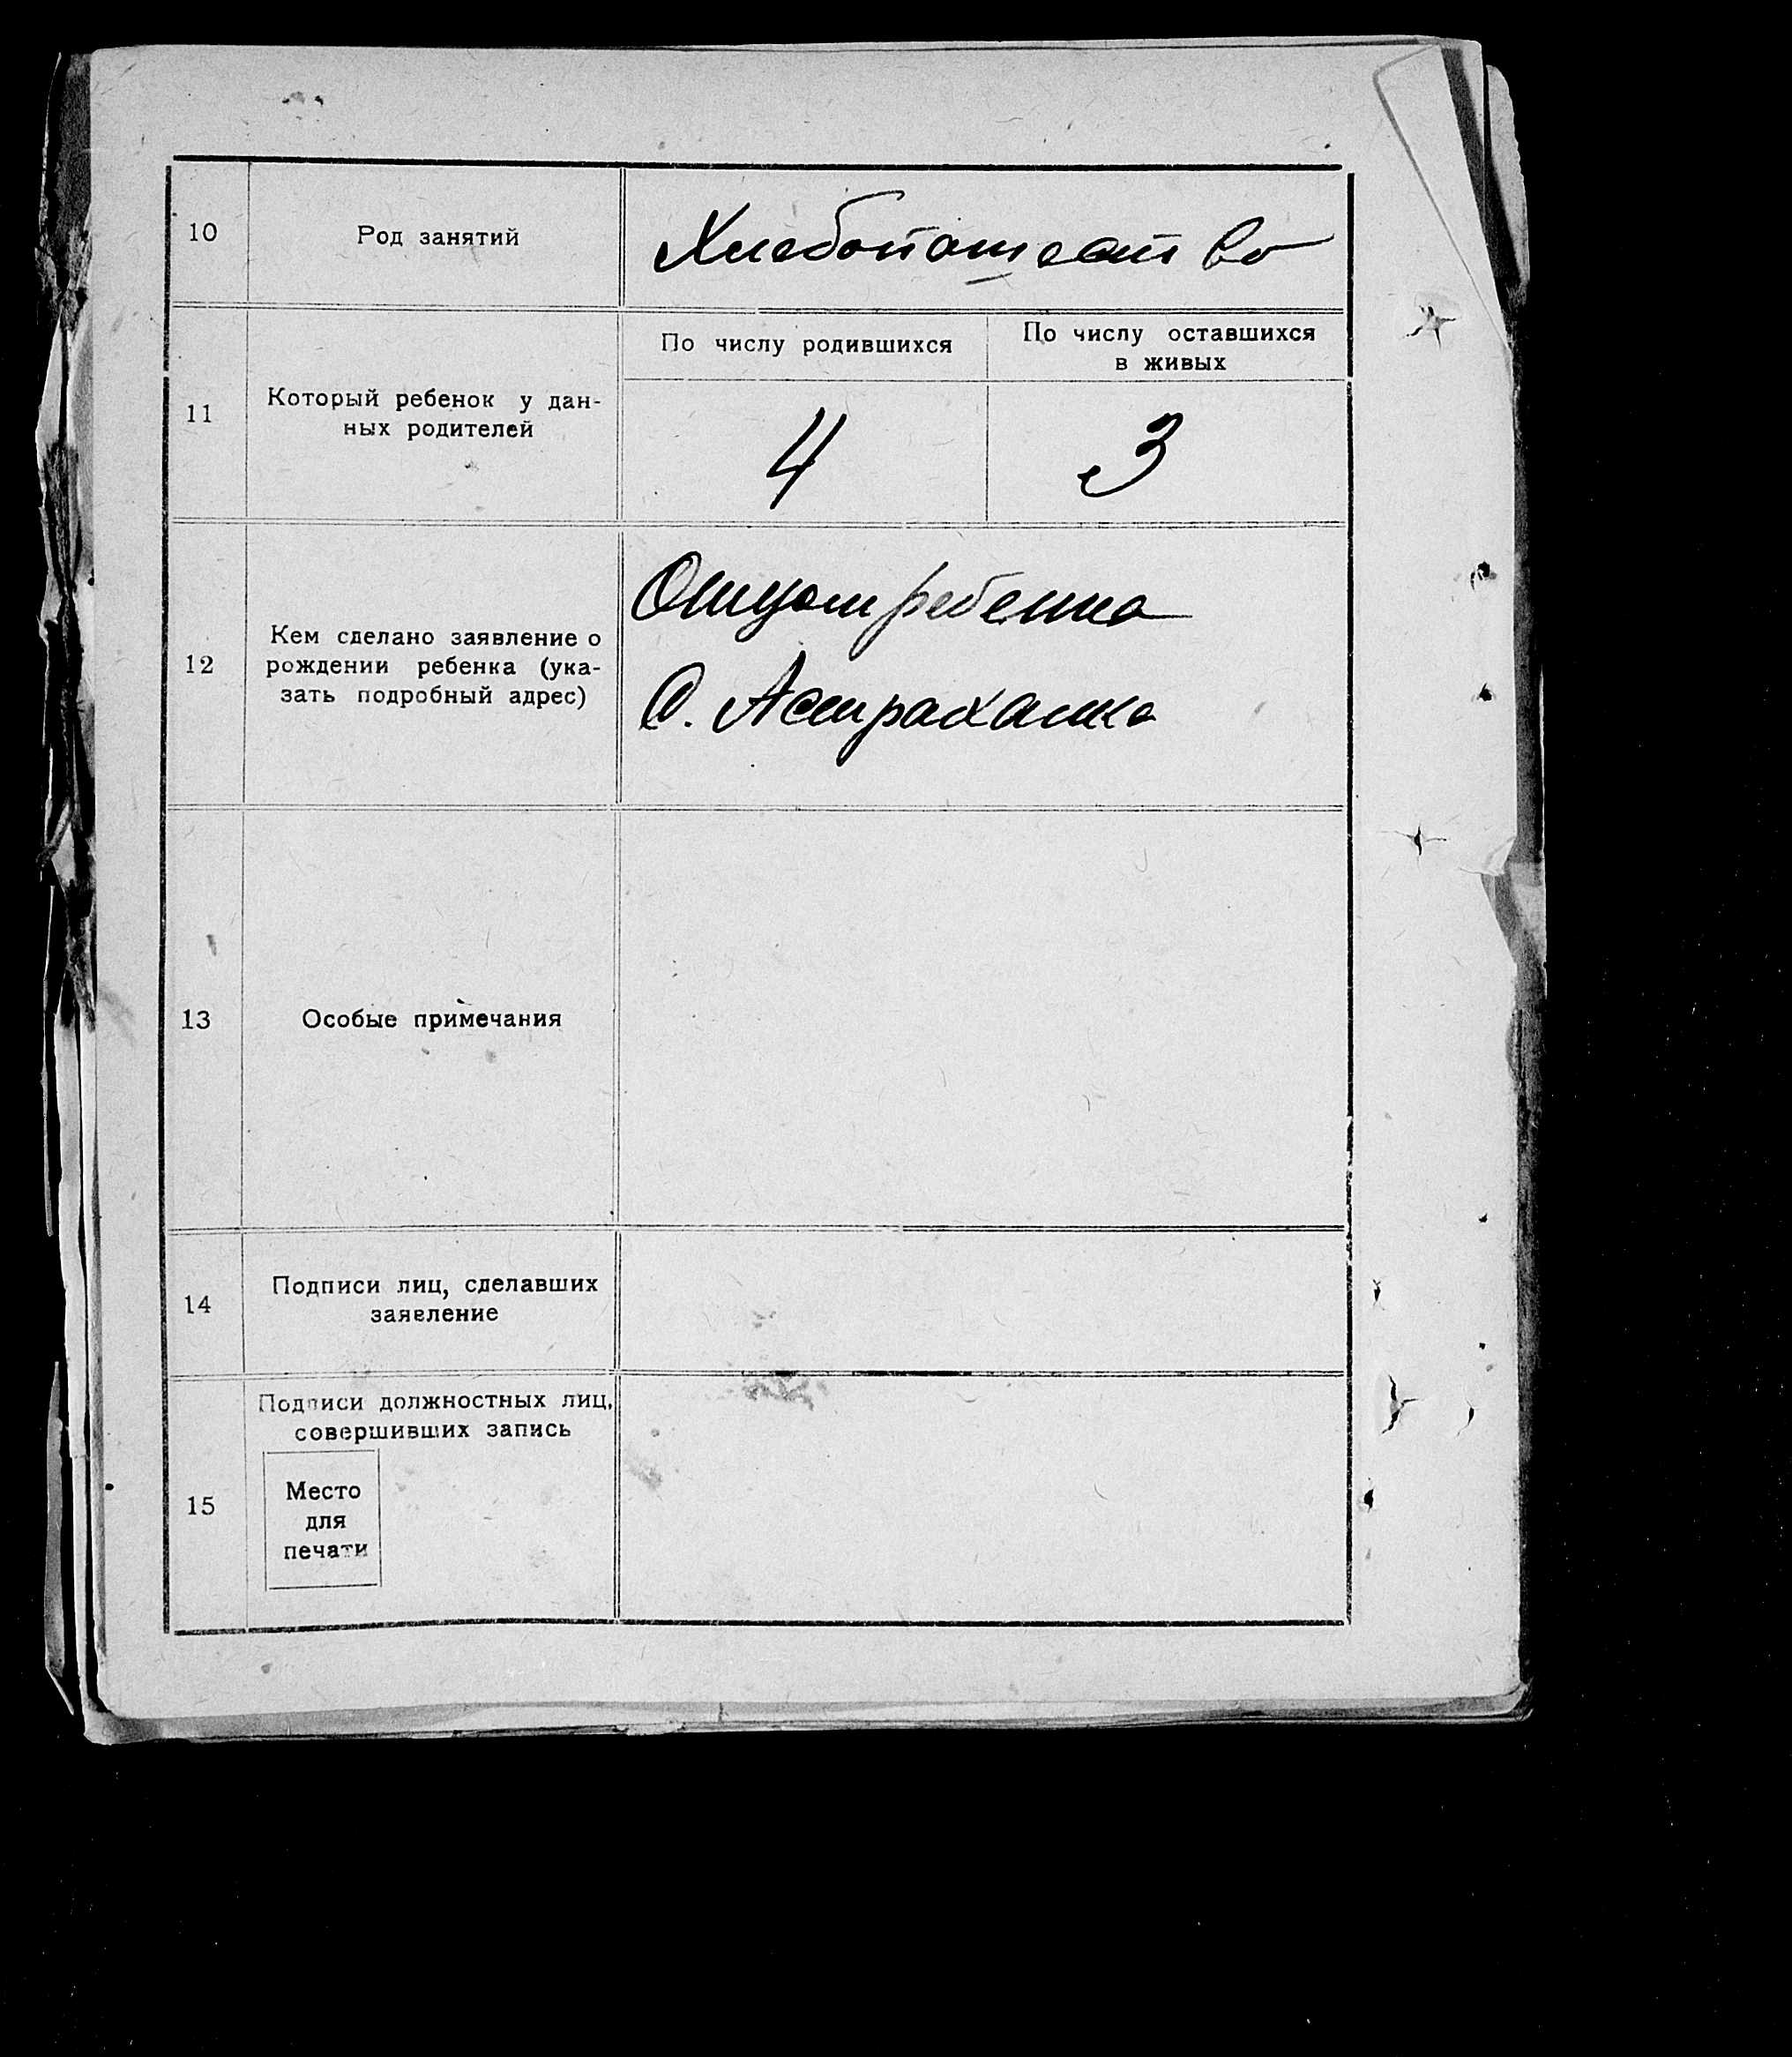 10
Род занятий
Хлебопашество
11
Который ребенок у дан-
ных родителей
По числу родившихся
По числу оставшихся
в живых
4
3
12
Кем сделано заявление о
рождении ребенка (ука-
зать подробный адрес)
Отцом ребенка
С. Астраханка
13
Особые примечания
14
Подписи лиц, сделавших
заявление
15
Подписи должностных лиц,
совершивших запись
Место
для
печати